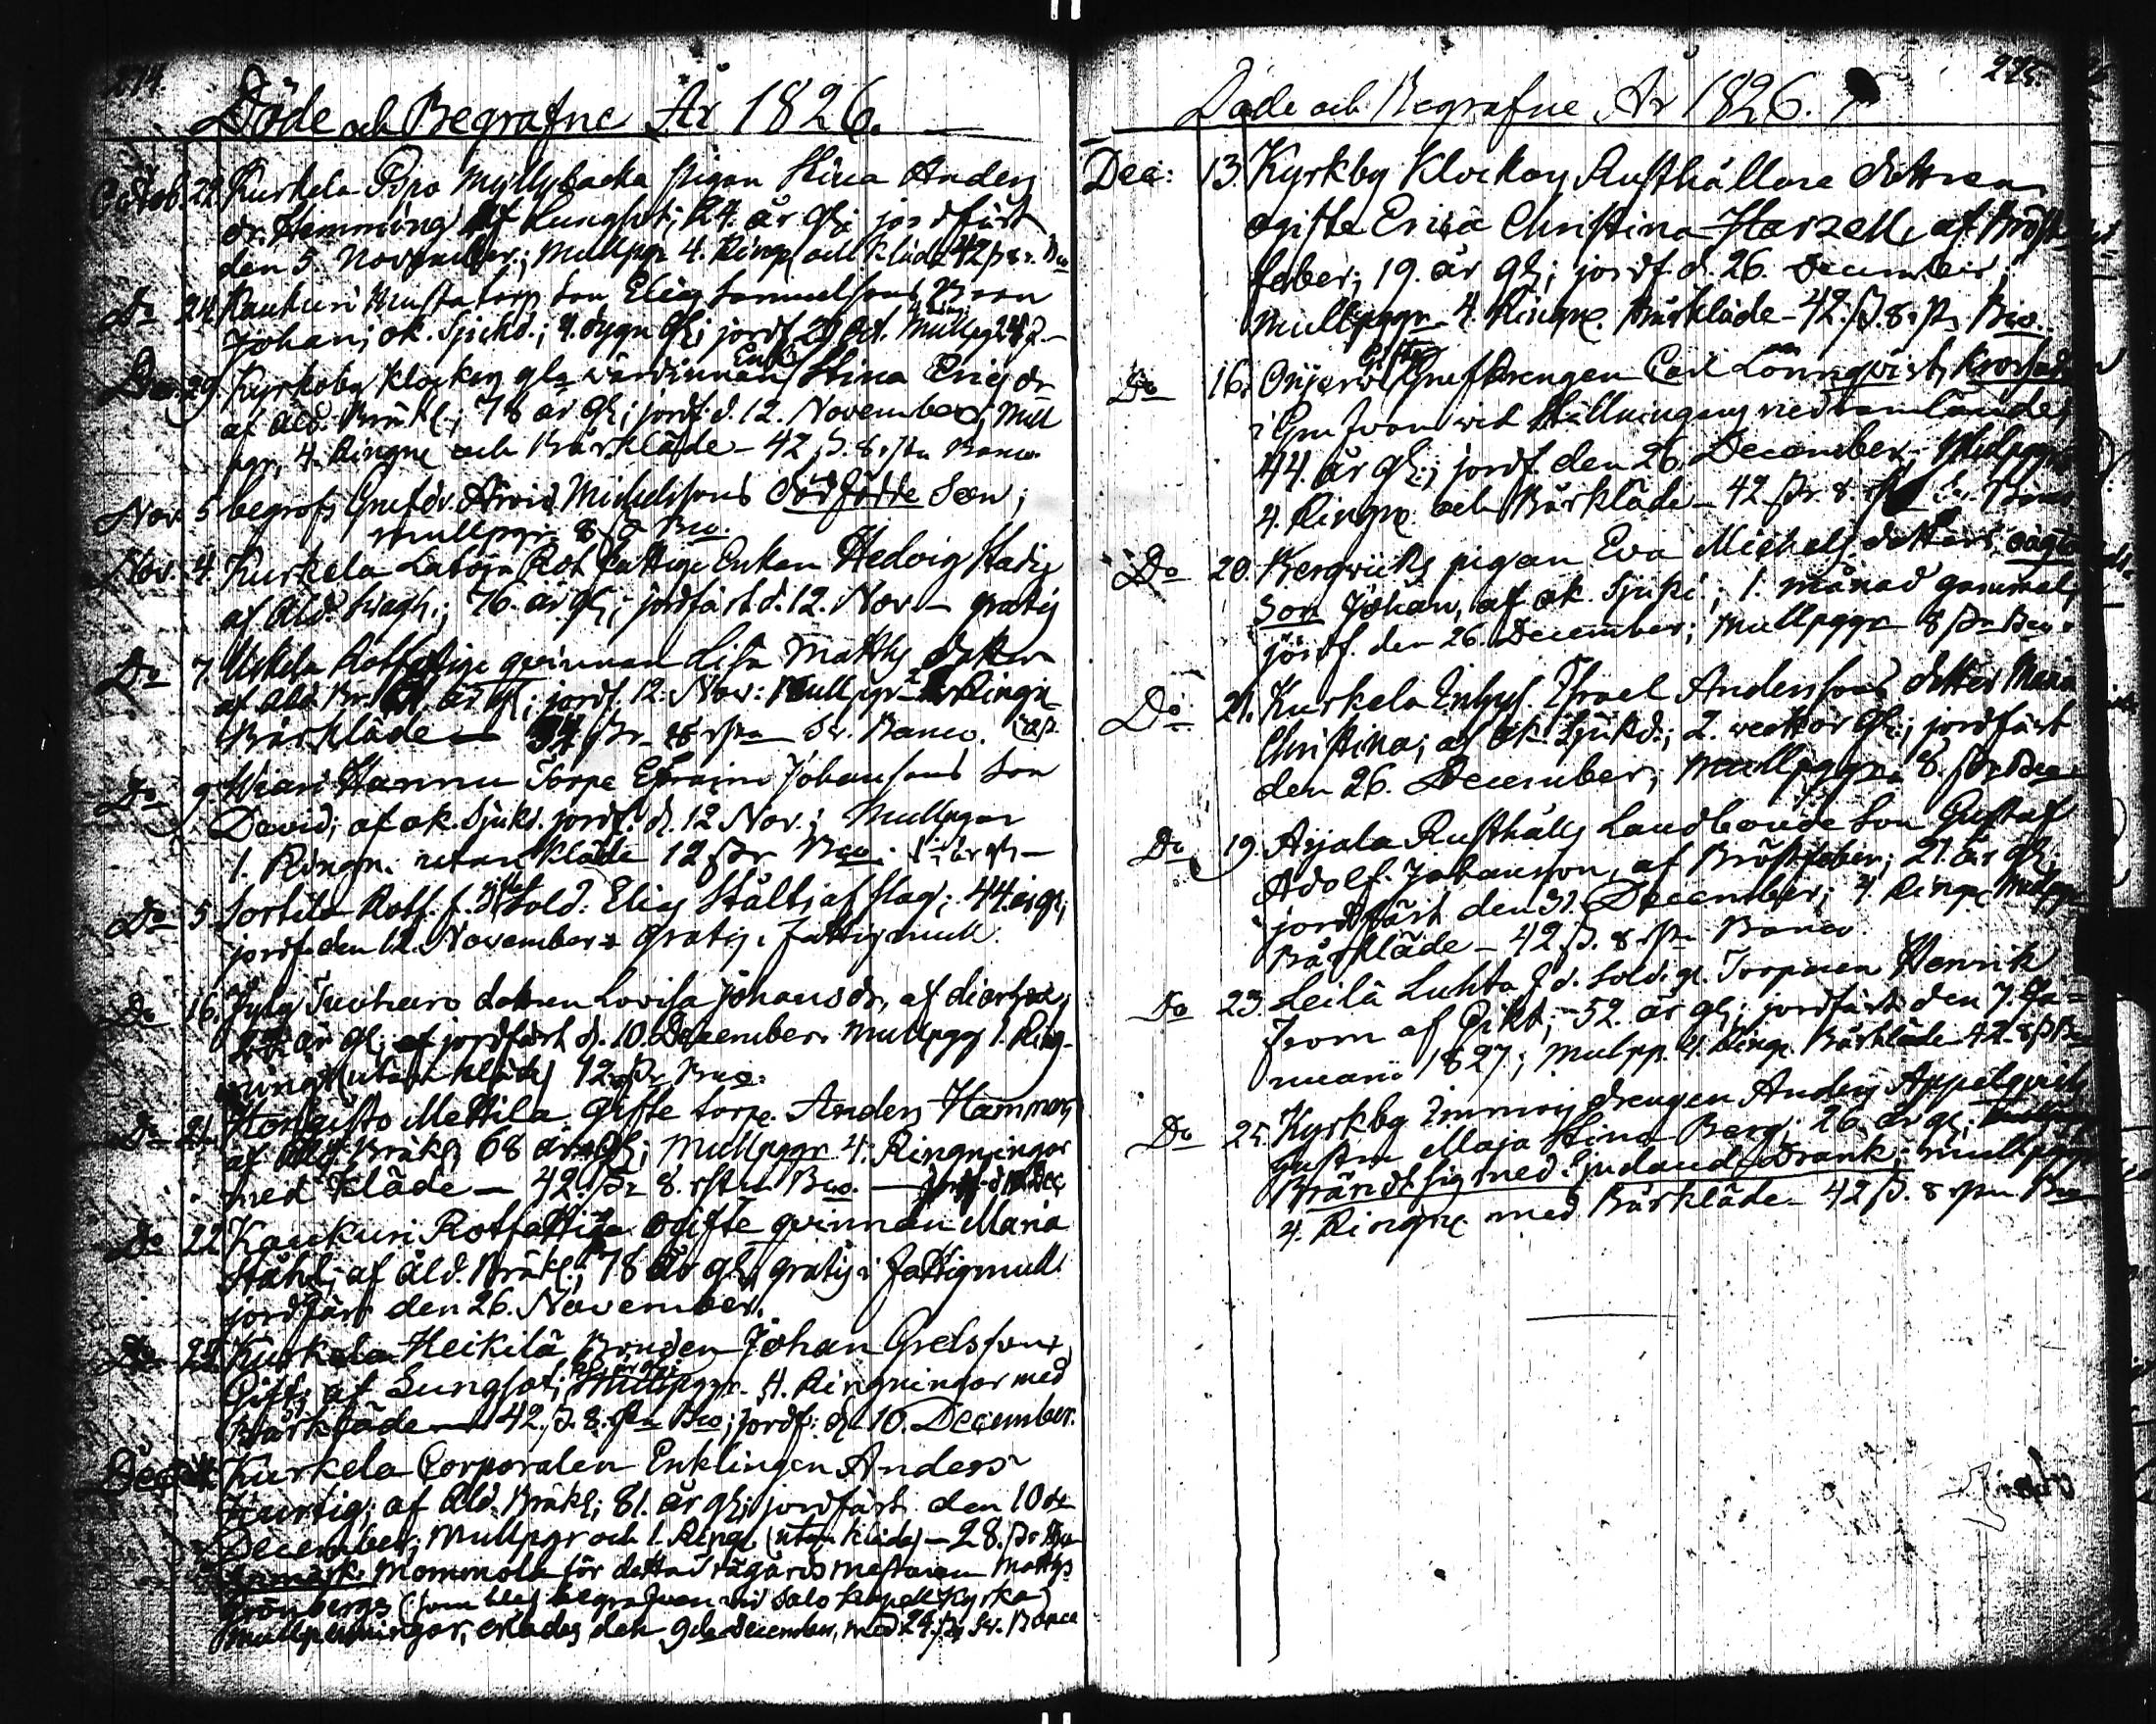 274.
Döde och Begrafne År 1826.
Octob. 22. Kurkela Pipo Myllybacka pigan Stina Anders
dr. Hemming af Lungsot; 24. år gl; jordfäst
den 5. November; Mullpgr 4. Ringn och Kläde 42 β 8 r. Bco
Do 24. Kaukuri torp Son Elias Samuelsons Barn
Johan; ok. Sjukd.; 9. dygn gl; jordf. 29 Oct. Mullpg
Do 29 Kyrkoby Klockars gla värdinnan Enk. Stina Ericsdr
af Åld. Bräkl.; 78 år gl; jordf. d. 12. November; Mull
pgr, 4. Ringn och Bårkläde - 42 β. 8 rst Banco
Nov. 5 begrofs Grufdr. Arvid Michelssons dödfödde Son;
mullpgr 8 β Bco.
Nov. 4 Kurkela Rotfattige Enkan Hedvig Stadig
af Åld. Svagh.; 76. år gl; jordfäst d. 12. Nov - gratis
Do 7 Uskela Rotfattige qvinnan Lisa Matths dotter
af åld. Br. år gl; jordf. 12. Nov: Mullpgr Ringn
Bårkläde 34 βr. 8 rst Sv. Banco.
Do 9 Hannu Torp Efraim Johansons Son
David; af ok. Sjukd. jordf. d. 12 Nov.; Mullpgr
1. Ringn. utan kläde 12 βr Bco.
Do 5 Sortila Rotf. f. gifte Sold: Elias Stålt af slag; 44. år gl;
jordf. den 12. November gratis i Fattigmull.
Do 16. Jylg dottren Lovisa Johansdr, af diarhée,
år gl; jordfäst d. 10. December Mullpgg 1. Ring-
ning (utan kläde) 12 βr Bco.
Do 21. Kongisto Mettila Gifte torp. Anders Hammar
af Åld. Bräkl. 68 år gl; Mullpggr 4. Ringningar
med Kläde - 42 βr 8. rst Bco. - jordf. d. Dec
Do 22 Kaukuri Rotfattiga ogifte qvinnan Maria
Ståhl; af åld. Bräkl.; 78 år gl, gratis i Fattigmull
jordfäst den 26. November.
Do 22 Kurkela Heikilä Bonden Johan Grelsson,
Gift, af Lungsot; år gl; Mullpggr. 4. Ringningar med
Bårkläde 42. β. 8. rst Bco; jordf: d. 10. December.
Dec Kurkela Corporalen Enklingen Anders
Hurtig; af Åld. Bräkl; 81. år gl; jordfäst den 10 de
December; Mullpgr och 1. Ringn (utan kläde) - 28. βr Bco
Anmärk. Mommola för detta Trägårdsmästaren Matths
Grönbergs (som blef begrafven vid Salo Kapell Kyrka)
Mullpenningar, erlades den 9de December, med 24. βr Sv. Banco
225.
Döde och Begrafne År 1826.
Dec: 13. Kyrkby Klockars Rusthållare dottren
ogifta Erica Christina Harzell, af Bröst
feber; 19. år gl; jordf. d. 26. December;
Mullpggr 4. Ringn. Bårkläde - 42. β. 8. r. Bco.
Do 16. Orijervi Gifte Grufdrengen Carl Lönnqvist, krossad
i Grufvan vid Ställningens nedramlande,
44. år gl.; jordf. den 26. December; Mullpggr
4. Ringn och Bårkläde - 42 βr. 8.
Do 20. Bergviks pigan Eva Michels dotters oägta
Son Johan, af ok. Sjukd.; 1. månad gammal,
jordf. den 26. December; Mullpggr 8 βr Bco.
Do 21. Kurkela Inhys. Israel Anderssons dotter Maria
Christina; af ok. Sjukd.; 2. veckor gl.; jordfäst
den 26. December; Mullpggr 8. βr Bco.
Do 19. Aijala Rusthålls Landbonde Son Gustaf
Adolf Johansson, af Bröstfeber; 21. år gl,
jordfäst den 31. December; 4. Ringn Mullpgr
Bårkläde - 42. β. 8. rst Banco
Do 23. Leilä Luhta f. d. Sold. gl. Torparen Henrik
From af Gikt; 52. år gl; jordfäst den 7. Ja=
nuarii 1827; Mulpp. 4. Ringn. Bårkläde 42. 8 β Bco
Do 25. Kyrkby drengen Anders Appelqvists
hustru Maja Stina Berg; 26. år gl;
Brändt sig med Sjudand Drank; mullpggr
4. Ringn med Bårkläde - 42 β. 8 rst. Bco